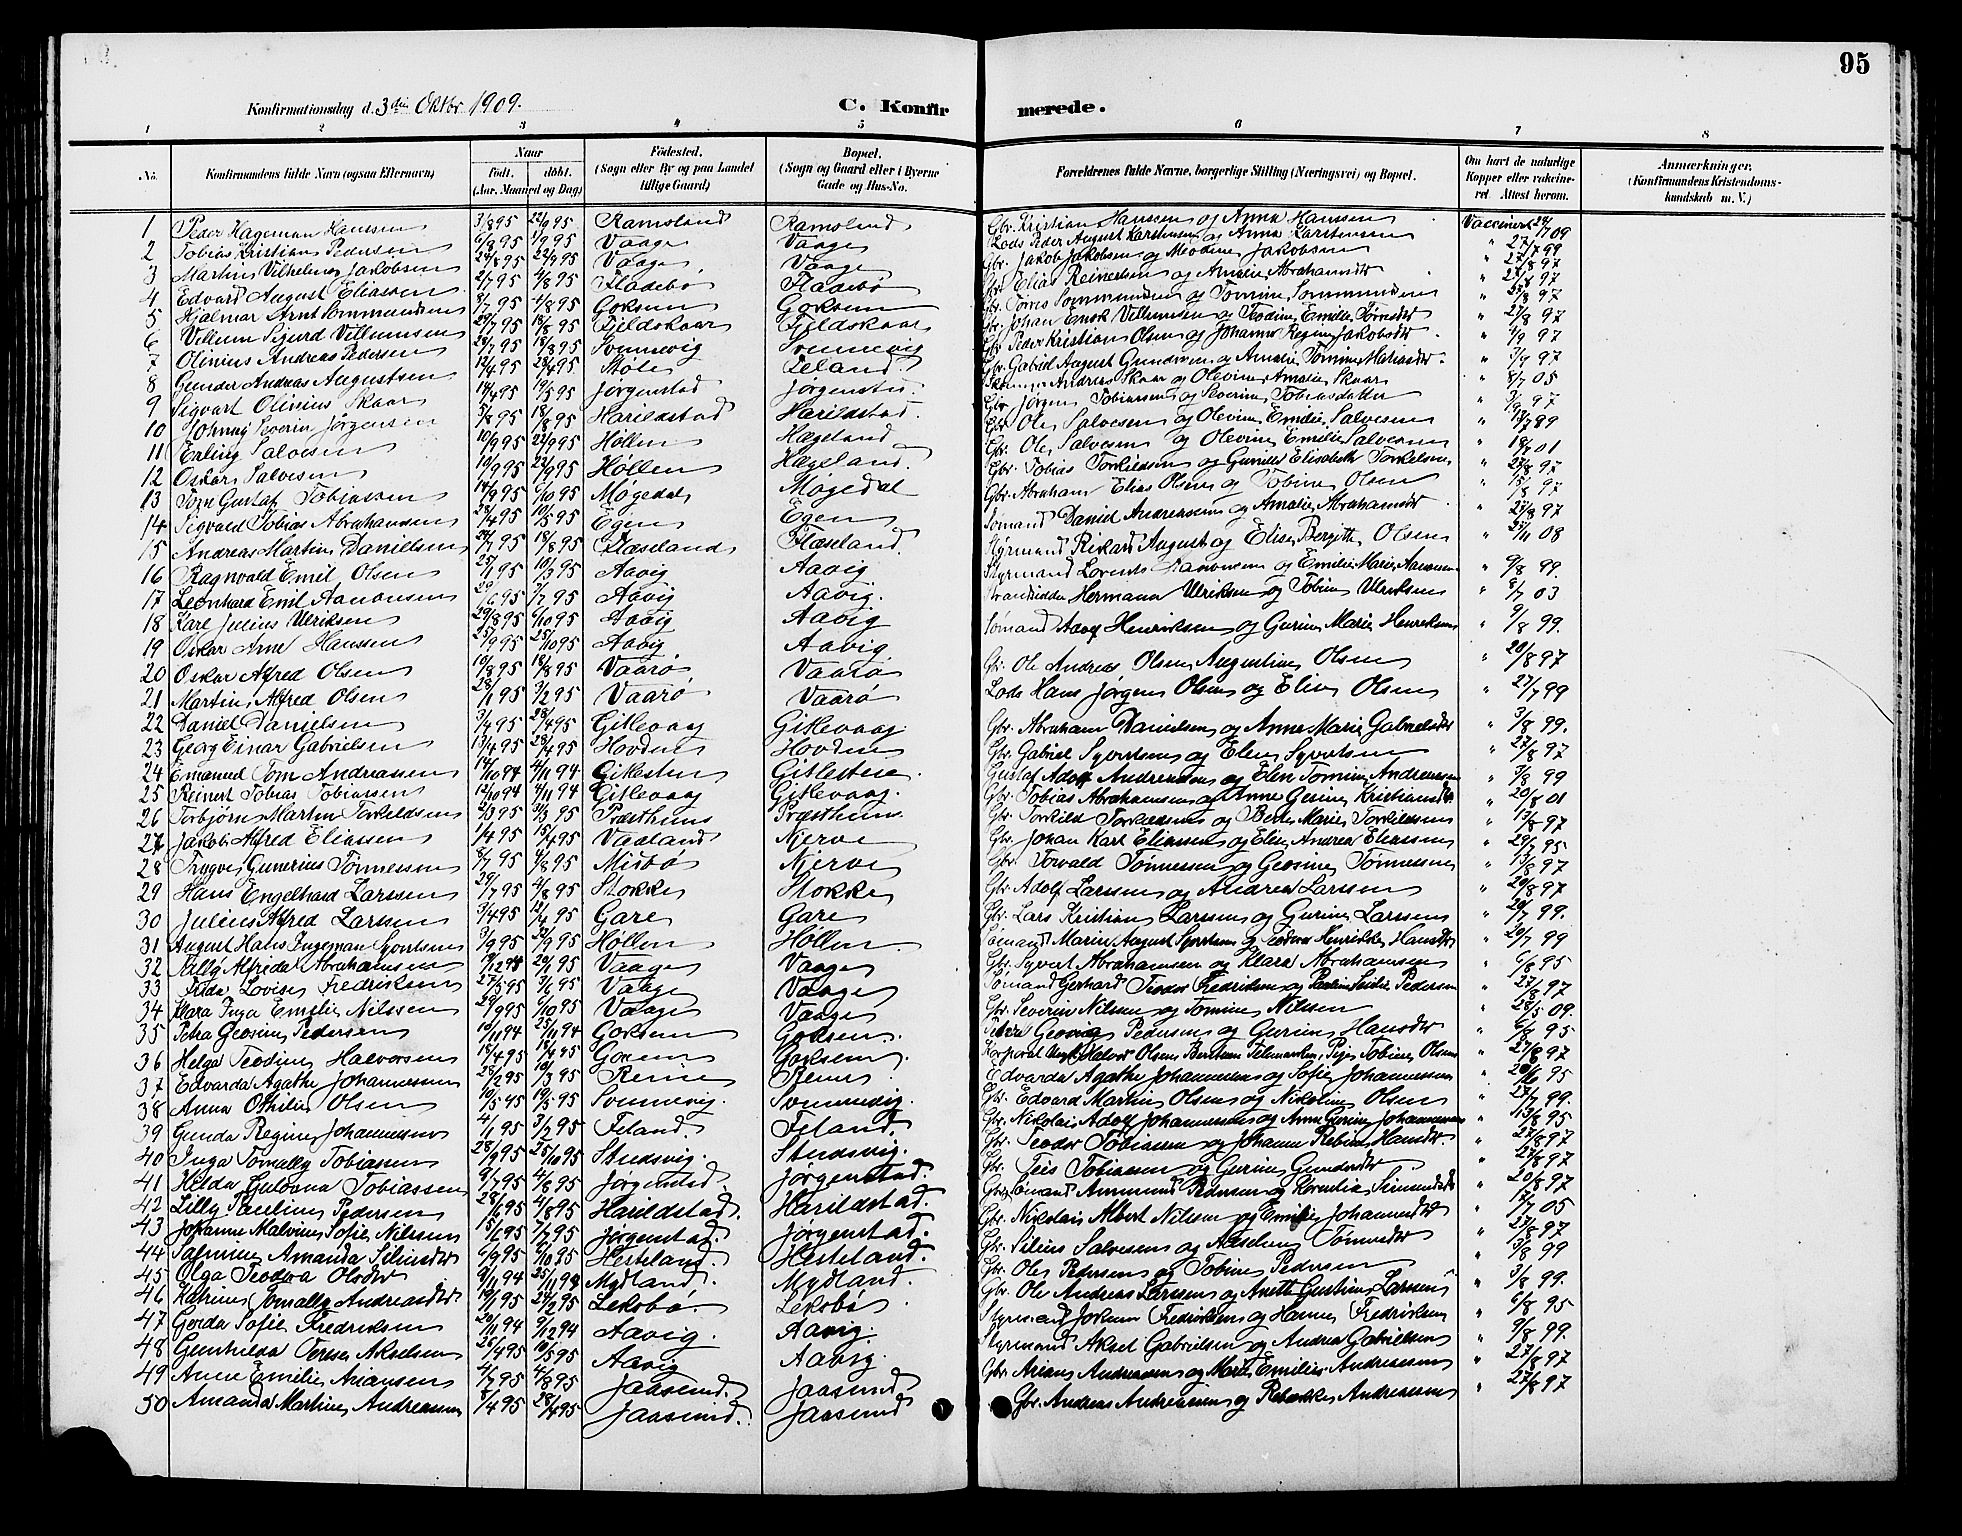 95
Konfirmationsdag d. 3die Oktbr 1909. C. Konfirmerede.
1 2 3 4 5 6 7 8
No. Konfirmandens fulde Navn (ogsaa Efternavn) Naar født. døbt. (Aar, Maaned og Dag) Fødested. (Sogn eller By og paa Landet tillige Gaard) Bopæl. (Sogn og Gaard eller i Byerne Gade og Hus-No. Forældrenes fulde Navne, borgerlige Stilling (Næringsvei) og Bopæl. Om havt de naturlige Kopper eller vakcineret. Attest herom. Anmærkninger. (Konfirmandens Kristendomskundskab m. V.)
1 Peder Hageman Hanssen 3/8 95 22/9 95 Ramsland Ramsland Gbr. Kristian Hanssen og Anna Hanssen Vaccineret
2 Tobias Kristian Pedersen 6/8 95 1/9 95 Vaage Vaage Lods Peder August Karstensen og Anna Karstensen
3 Martin Vilhelm Jakobsen 22/9 95 Vaage Vaage Gbr. Jakob Jakobsen og Jakobsen
4 Edvard August Eliassen 2/7 95 4/8 95 Fladebø Fladebø Gbr. Elias Reinertsen og Amalie Abrahamsdtr
5 Hjalmar Arnt Sommundsen 8/7 95 4/8 95 Goksem Goksem Gbr. Tørres Sommundsen og Tomine Sommundsen
6 Villum Sigurd Villumsen 29/7 95 18/8 95 Fjeldskaar Fjeldskaar Gbr. Johan Villumsen og Teodine Emilie Tørresdtr
7 Olinius Andreas Pedersen 18/8 95 Svennevig Svennevig Gbr. Peder Kristian Olsen og Johanne Regine Jakobsdtr
8 Gunder Andreas Augustsen Støle Feland Gbr. Gabriel August Gundersen og Amalie Tomine
9 Sigvart Olinius Skaar 14/4 95 19/5 95 Jørgenstad Jørgenstad Andreas Skaar og Olevine Amalie Skaar 8/7 05
10 Johnny Severin Jørgensen 5/8 95 18/9 95 Harildstad Harildstad Gbr. Jørgen Tobiassen og Severine Tobiasdatter
11 Erling Salvesen 10/9 95 22/9 95 Høllen Hægeland Gbr. Ole Salvesen og Olevine Emilie Salvesen
12 Oskar Salvesen 10/9 95 22/9 95 Høllen Hægeland. Gbr. Ole Salvesen og Olevine Emilie Salvesen 18/7 01
13 Tom Gustaf Tobiassen 14/9 95 6/10 95 Møgedal Møgedal Gbr. Tobias Torkildsen og Gunille Elisabeth Torkelsen
14 Sigvald Tobias Abrahamsen 28/4 95 19/5 95 Egen Egen Gbr. Abraham Elias Olsen og Tobine Olsen
15 Andreas Martin Danielsen 24/7 95 18/8 95 Flæseland Flæseland. Sømand Daniel Andreassen og Amalie Abrahamsdtr
16 Ragnvald Emil Olsen 10/3 95 Aavig Aavig Styrmand Rikard August og Elise Bergitte Olsen 25/11 08
17 Leonhard Emil Aanonsen 7/7 95 Aavig Aavig. Styrmand Lorents Aanonsen og Emilie Marie Aanonsen 9/8 99.
18 Karl Julius Ulriksen 29/8 95 6/10 95 Aavig Aavig Hermann Ulriksen og Tobine Ulriksen 8/7 03
19 Oskar Arne Hanssen 25/10 95 Aavig Aavig Sømand Adolf Henriksen og Gurine Marie Henriksen 9/8 99.
20 Oskar Alfred Olsen 10/8 95 18/8 95 Vaarø Vaarø Gbr. Ole Andreas Olsen Augustine Olsen 20/8 97
21 Martin Alfred Olsen 28/1 95 3/2 95 Vaarø Vaarø Lods Hans Jørgen Olsen og Elise Olsen 27/7 99
22 Daniel Danielsen 3/4 95 28/4 95 Gitlevaag Gitlevaag. Gbr. Abraham Danielsen og Anne Marie Gabrielsdtr 3/8 99.
23 Georg Einar Gabrielsen 13/4 95 28/4 95 Hovden Hovden Gbr. Gabriel Syvertsen og Elen Syvertsen 27/8 97
24 Emanuel Tom Andreassen 14/10 94 4/11 94 Gitlesten Gitlesten. Gustaf Adolf Andreassen og Elen Tomine Andreassen 3/8 99
25 Reinert Tobias Tobiassen 12/10 94 4/11 94 Gitlevaag Gitlevaag. Gbr. Tobias Abrahamsen og Anne Gurine Kristiansdtr 20/8 01
26 Torbjørn Martin Torkildsen 2/3 95 31/3 95 Præsthuus Præsthuus Gbr. Torkild Torkildsen og Berte Marie Torkildsen 13/8 97
27 Jakob Alfred Eliassen 1/4 95 15/4 95 Vadland Njerve Gbr. Johan Karl Eliassen og Elise Andrea Eliassen 29/7 95
28 Trygve Gunerius Tønnessen 8/7 95 4/8 95 Misbø Njerve Gbr. Torvald Tønnessen og Geosine Tønnessen 13/8 97
29 Hans Engelhard Larssen 29/7 95 4/8 95 Stokke Stokke Gbr. Adolf Larssen og Andrea Larssen 20/8 97
30 Julius Alfred Larssen 3/4 95 Gare Gare Gbr. Lars Kristian Larssen og Gurine Larssen 20/7 99.
31 August Hans Ingeman Syvertsen 3/9 95 22/9 95 Høllen Høllen Sømand Marin August Syvertsen og Teodora Henrikke Hansdtr 20/7 99
32 Nilly Alfrida Abrahamsen 19/12 94 20/1 95 Vaage Vaage Gbr. Syvert Abrahamsen og Klara Abrahamsen 6/8 95
33 Tilda Lovise Fredriksen 27/5 95 3/6 95 Vaage Vaage Sømand Gerhard Teodor Fredriksen og Pedersen 27/8 97
34 Klara Inga Emelie Nilssen 29/9 95 6/10 95 Vaage Vaage Gbr. Severin Nilsen og Tomine Nilssen 28/5 09.
35 Petra Geosine Pedersen 10/11 94 25/11 94 Goksem Goksem. Georg Pedersen og Gurine Hansdtr 6/8 95
36 Helga Teodine Halvorsen 18/4 95 Goksem. Korporal Halvor Olsen Pige Tobine Olsen 27/8 97
37 Edvarda Agathe Johannessen 28/2 95 10/3 95 Reme Reme Edvarda Agathe Johannessen og Sofie Johannessen
38 Anna Othilie Olsen 10/5 95 19/5 95 Svennevig. Svennevig. Gbr. Edvard Martin Olsen og Nikoline Olsen 27/7 99.
39 Gunda Regine Johannessen 4/1 95 3/2 95 Feland. Feland. Gbr. Nikolai Adolf Johannessen og Anne Gurine Johannessen 13/6 95
40 Inga Tomally Tobiassen 28/9 95 25/10 95 Stusvig. Stusvig. Gbr. Teodor Tobiassen og Johanne Hansdtr. 27/8 97
41 Hilda Gulovna Tobiassen 9/7 95 4/8 95 Jørgenstad. Jørgenstad. Gbr. Teis Tobiassen og Gurine Gundersdtr 27/8 97
42 Lilly Pauline Pedersen 28/6 95 4/8 95 Harildstad. Harildstad. Gbr. Sømand Ammund Pedersen og 20/8 97
43 Johanne Malvine Sofie Nilssen 15/6 95 7/7 95 Jørgenstad. Jørgenstad. Gbr. Nikolai Albert Nilssen og Emilie Johannesdtr 17/7 05
44 Salmine Amanda Siliusdtr 6/9 95 6/10 95 Hesteland. Hesteland. Gbr. Silius Salvesen og Aaselene Tomesdtr 27/8 97
45 Olga Teodora Olsdtr 9/11 94 25/11 94 Mydland. Mydland. Gbr. Ole Pedersen og Tobine Pedersen 3/8 99
46 Katrine Tomally Andreasdtr 19/1 95 24/2 95 Leksbø. Leksbø. Gbr. Ole Andreas Larssen og Anette Gustine Larssen 3/8 99.
47 Gerda Sofie Fredriksen 20/11 94 9/12 94 Aavig. Aavig. Styrmand Jokum Fredriksen og Hanne Fredriksen 6/8 95
48 Gunhilda Terese Akselsen 25/4 95 19/5 95 Aavig Aavig. Styrmand Aksel Gabrielsen og Andrea Gabrielsen 9/8 99.
49 Anne Emilie Ariansen 4/7 95 4/8 95 Jaasund. Jaasund Gbr. Arian Andreassen og Marte Emilie Andreassen 27/8 97
50 Amanda Martine Andreassen 5/4 95 28/4 95 Jaasund. Jaasund Gbr. Andreas Andreassen og Rebekke Andreassen 27/8 97